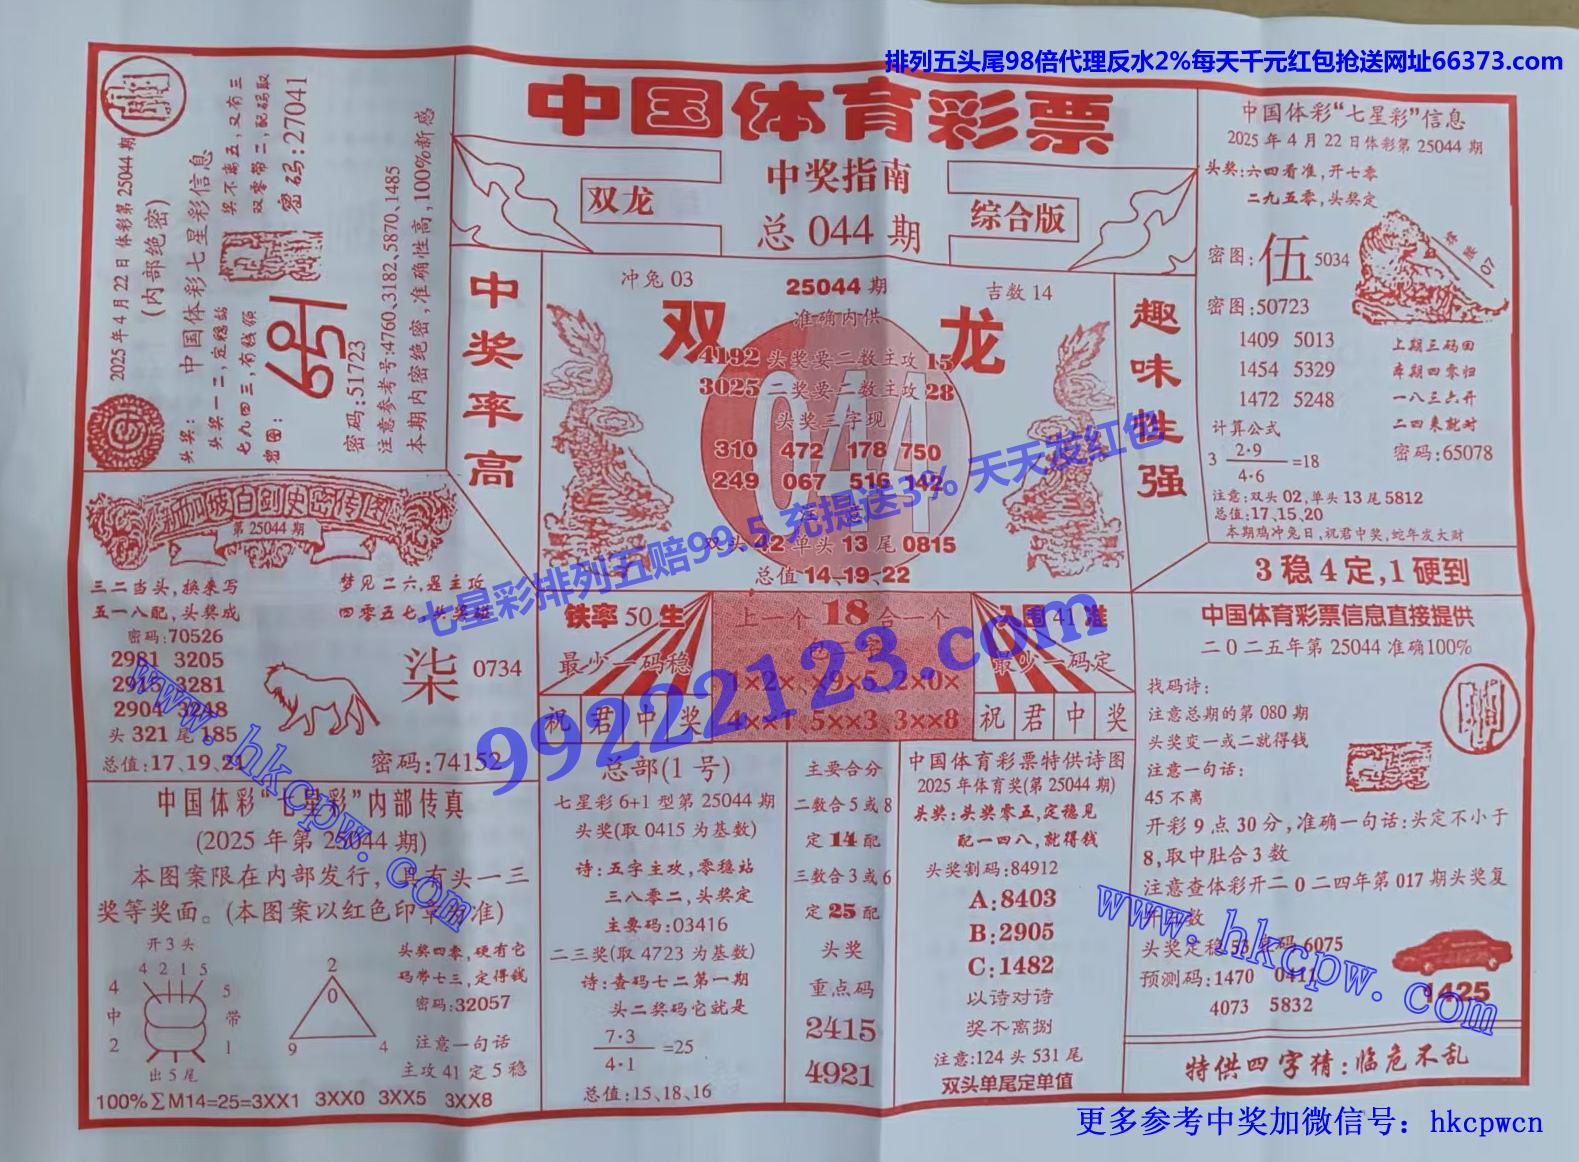 排列五头尾98倍代理反水2%每天千元红包抢送网址66373.com
中国体育彩票
中奖指南
双龙
综合版
总 044 期
2025 年 4 月 22 日体彩第 25044 期
(内部绝密)
中国体彩七星彩信息
头奖:
头奖一二,定稳站
奖不离五,又有三
七九四三,有钱领
双零带二,配码取
密图:
密码:27041
密码:51723
注意参考号:4760、3182、5870、1485
本期内密绝密,准确性高,100%新感
中国体彩“七星彩”信息
2025 年 4 月 22 日体彩第 25044 期
头奖:六四看准,开七零
二九五零,头奖定
密图:伍 5034
密图:50723
1409 5013
1454 5329
1472 5248
上期三码回
本期四零归
一八三六开
二四来就对
密码:65078
计算公式
3 2·9/4·6 =18
注意:双头 02,单头 13 尾 5812
总值:17、15、20
本期鸡冲兔日,祝君中奖,蛇年发大财
3 稳 4 定,1 硬到
中奖率高
趣味性强
冲兔 03
25044 期
吉数 14
双龙
准确内供
4192 头奖要二数主攻 15
3025 二奖要二数主攻 28
头奖三字现
310 472 178 750
249 067 516 142
双头 42 单头 13 尾 0815
总值 14、19、22
044
第 25044 期
三二当头,换来写
五一八配,头奖成
梦见二六,是主攻
四零五七,头奖
密码:70526
2981 3205
2915 3281
2904 3248
头 321 尾 185
总值:17、19、21
柒 0734
密码:74152
铁率 50 生
最少一码稳
上一个 18 合一个
入围 41 准
最少一码定
祝君中奖
4××1、5××3、3××8
祝君中奖
中国体育彩票信息直接提供
二 0 二五年第 25044 准确100%
找码诗:
注意总期的第 080 期
头奖变一或二就得钱
注意一句话:
45 不离
开彩 9 点 30 分,准确一句话:头定不小于
8,取中肚合 3 数
注意查体彩开二 0 二四年第 017 期头奖复
头奖定稳 53 密码 6075
预测码:1470 0411
4073 5832
1425
特供四字猜:临危不乱
中国体彩“七星彩”内部传真
(2025 年第 25044 期)
本图案限在内部发行,具有头一三
奖等奖面。(本图案以红色印章为准)
开 3 头
4 2 1 5
4 中 2
5 带 1
出 5 尾
2
0
9 4
头奖四零,硬有它
码带七三,定得钱
密码:32057
注意一句话
主攻 41 定 5 稳
100%∑M14=25=3XX1 3XX0 3XX5 3XX8
总部(1 号)
七星彩 6+1 型第 25044 期
头奖(取 0415 为基数)
诗:五字主攻,零稳站
三八零二,头奖定
主要码:03416
二三奖(取 4723 为基数)
诗:查码七二第一期
头二奖码它就是
7·3/4·1 =25
总值:15、18、16
主要合分
二数合 5 或 8
定 14 配
三数合 3 或 6
定 25 配
头奖
重点码
2415
4921
中国体育彩票特供诗图
2025 年体育奖(第 25044 期)
头奖:头奖零五,定稳见
配一四八,就得钱
头奖割码:84912
A:8403
B:2905
C:1482
以诗对诗
奖不离捌
注意:124 头 531 尾
双头单尾定单值
七星彩排列五赔99.5 充提送3% 天天发红包
99222123.com
www.hkcpw.com
www.hkcpw.com
更多参考中奖加微信号：hkcpwcn